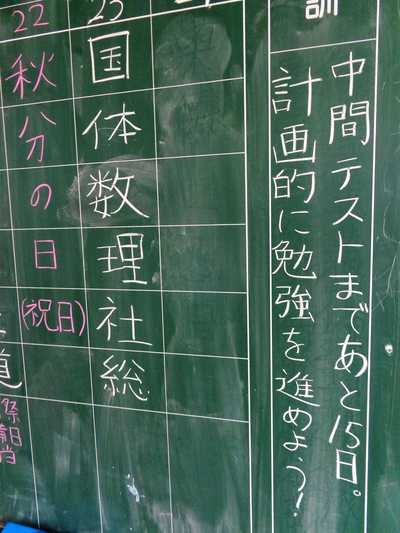 訓
中間テストまであと15日。
計画的に勉強を進めよう！
23
国
体
数
理
社
総
22
秋
分
の
日
(祝日)
道